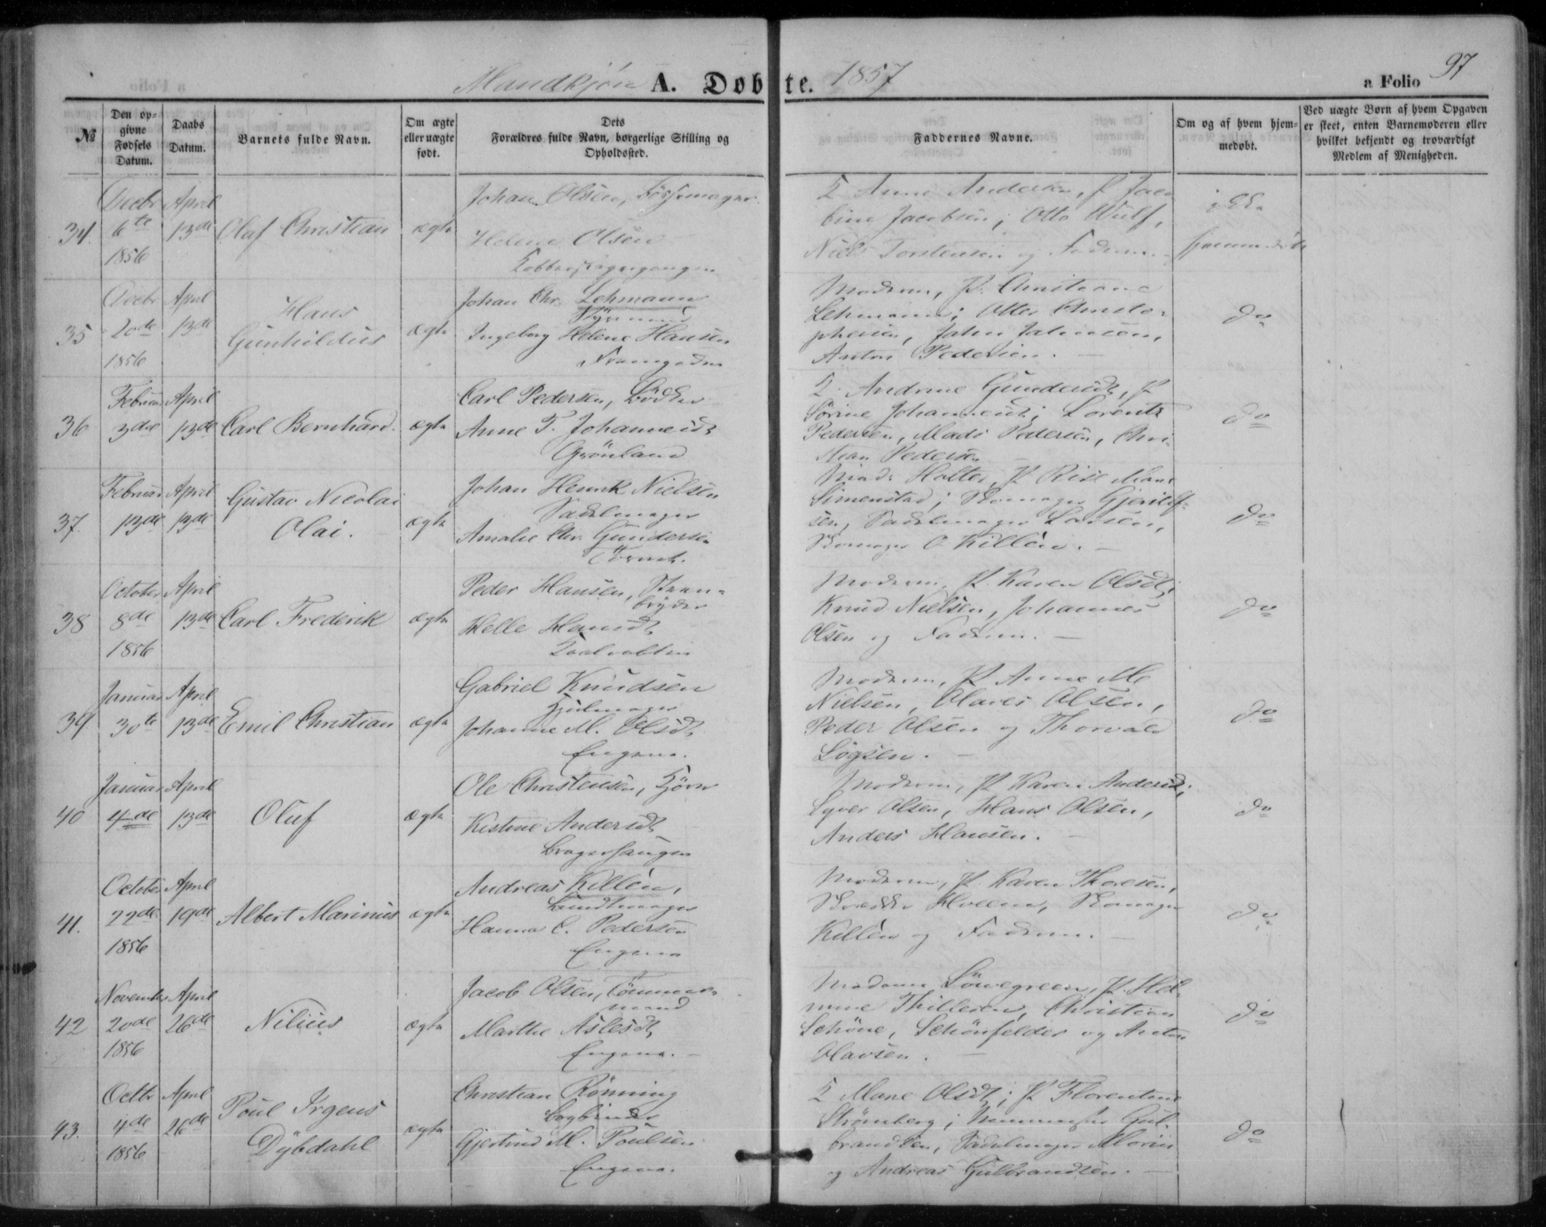 Mandkjøn A. Døbte. 1857
a Folio 97
№
Den opgivne Fødsels Datum.
Daabs Datum.
Barnets fulde Navn.
Om ægte eller uægte født.
Dets Forældres fulde Navn, borgerlige Stilling og Opholdsted.
Faddernes Navne.
Om og af hvem hjemmedøbt.
Ved uægte Børn af hvem Opgaven er skeet, enten Barnemoderen eller hvilket bekjendt og troværdigt Medlem af Menigheden.
34.
Decbr 6te 1856
April 13de
Oluf Christian
ægte
Johan Olsen,
Helene Olsen
Anne Andersen, P. Jacobine Jacobsen; Otto Wulf,
Niels Torstensen og Faderen.
ikke hjemmedøbt
35
Decbr 20de 1856
April 13de
Hans
Gunhildus
ægte
Johan Chr. Lehmann
Ingeborg Helene Hansen
Moderen, P. Christiane
Lehmann; Otter Christophersen,
Anton Pedersen.
do
36
Februar 3die
April 13de
Carl Bernhard.
ægte
Carl Pedersen, Bødker
Anne F. Johannesdt
Grønland
Andrine Gundersdt, P.
Sørine Johannesdt; Lorentz
Pedersen, Mads Pedersen, Christian Pedersen
do
37.
Februar 13de
April 13de
Gustav Nicolai
Olai.
ægte
Johan Henrik Nielsen
Sadelmager
Amalie Chr. Gundersen
Mad. Holter, P. Risе
Simenstad; Skomager
Sadelmager Larsen,
Skomager O. Killèn.
do
38
October 8de 1856
April 13de
Carl Frederik
ægte
Peder Hansen,
Helle Hansdt
Moderen, P. Karen Olsdt;
Knud Nielsen, Johannes
Olsen og Faderen.
do
39
Januar 30te
April 13de
Emil Christian
ægte
Gabriel Knudsen
Hjulmager
Johanne M. Olsdt
Engene.
Moderen, P. Anne M.
Nielsen, Olaves Olsen,
Peder Olsen og Thorvald
do
40
Januar 4de
April 13de
Oluf
ægte
Ole Christensen,
Kistine Andersdt
Moderen, P. Karen Andersdt;
Syver Olsen, Hans Olsen,
Anders Hansen.
do
41.
October 22de 1856
April 19de
Albert Marinus
ægte
Andreas Killèn,
Bundtmager
Hanna C. Pedersen
Engene
Moderen, P. Karen Thoresen,
Skrædder Skomager
Killèn og Faderen.
do
42
November 20de 1856
April 26de
Nilius
ægte
Jacob Olsen, Tømmermand
Marthe Aslesdt
Engene.
Madam Løvegreen, P.
Christian
Schøne, Schønfelder og Anton
Olavsen.
do
43.
Octbr 4de 1856
April 26de
Poul Irgens
Dybdahl
ægte
Christian Rønning
Bogbinder
Gjertrud M. Poulsen
Engene.
Mane Olsdt; P. Florentine
Strømberg; Gulbrandsen, Sadelmager
og Andreas Gulbrandsen.
do